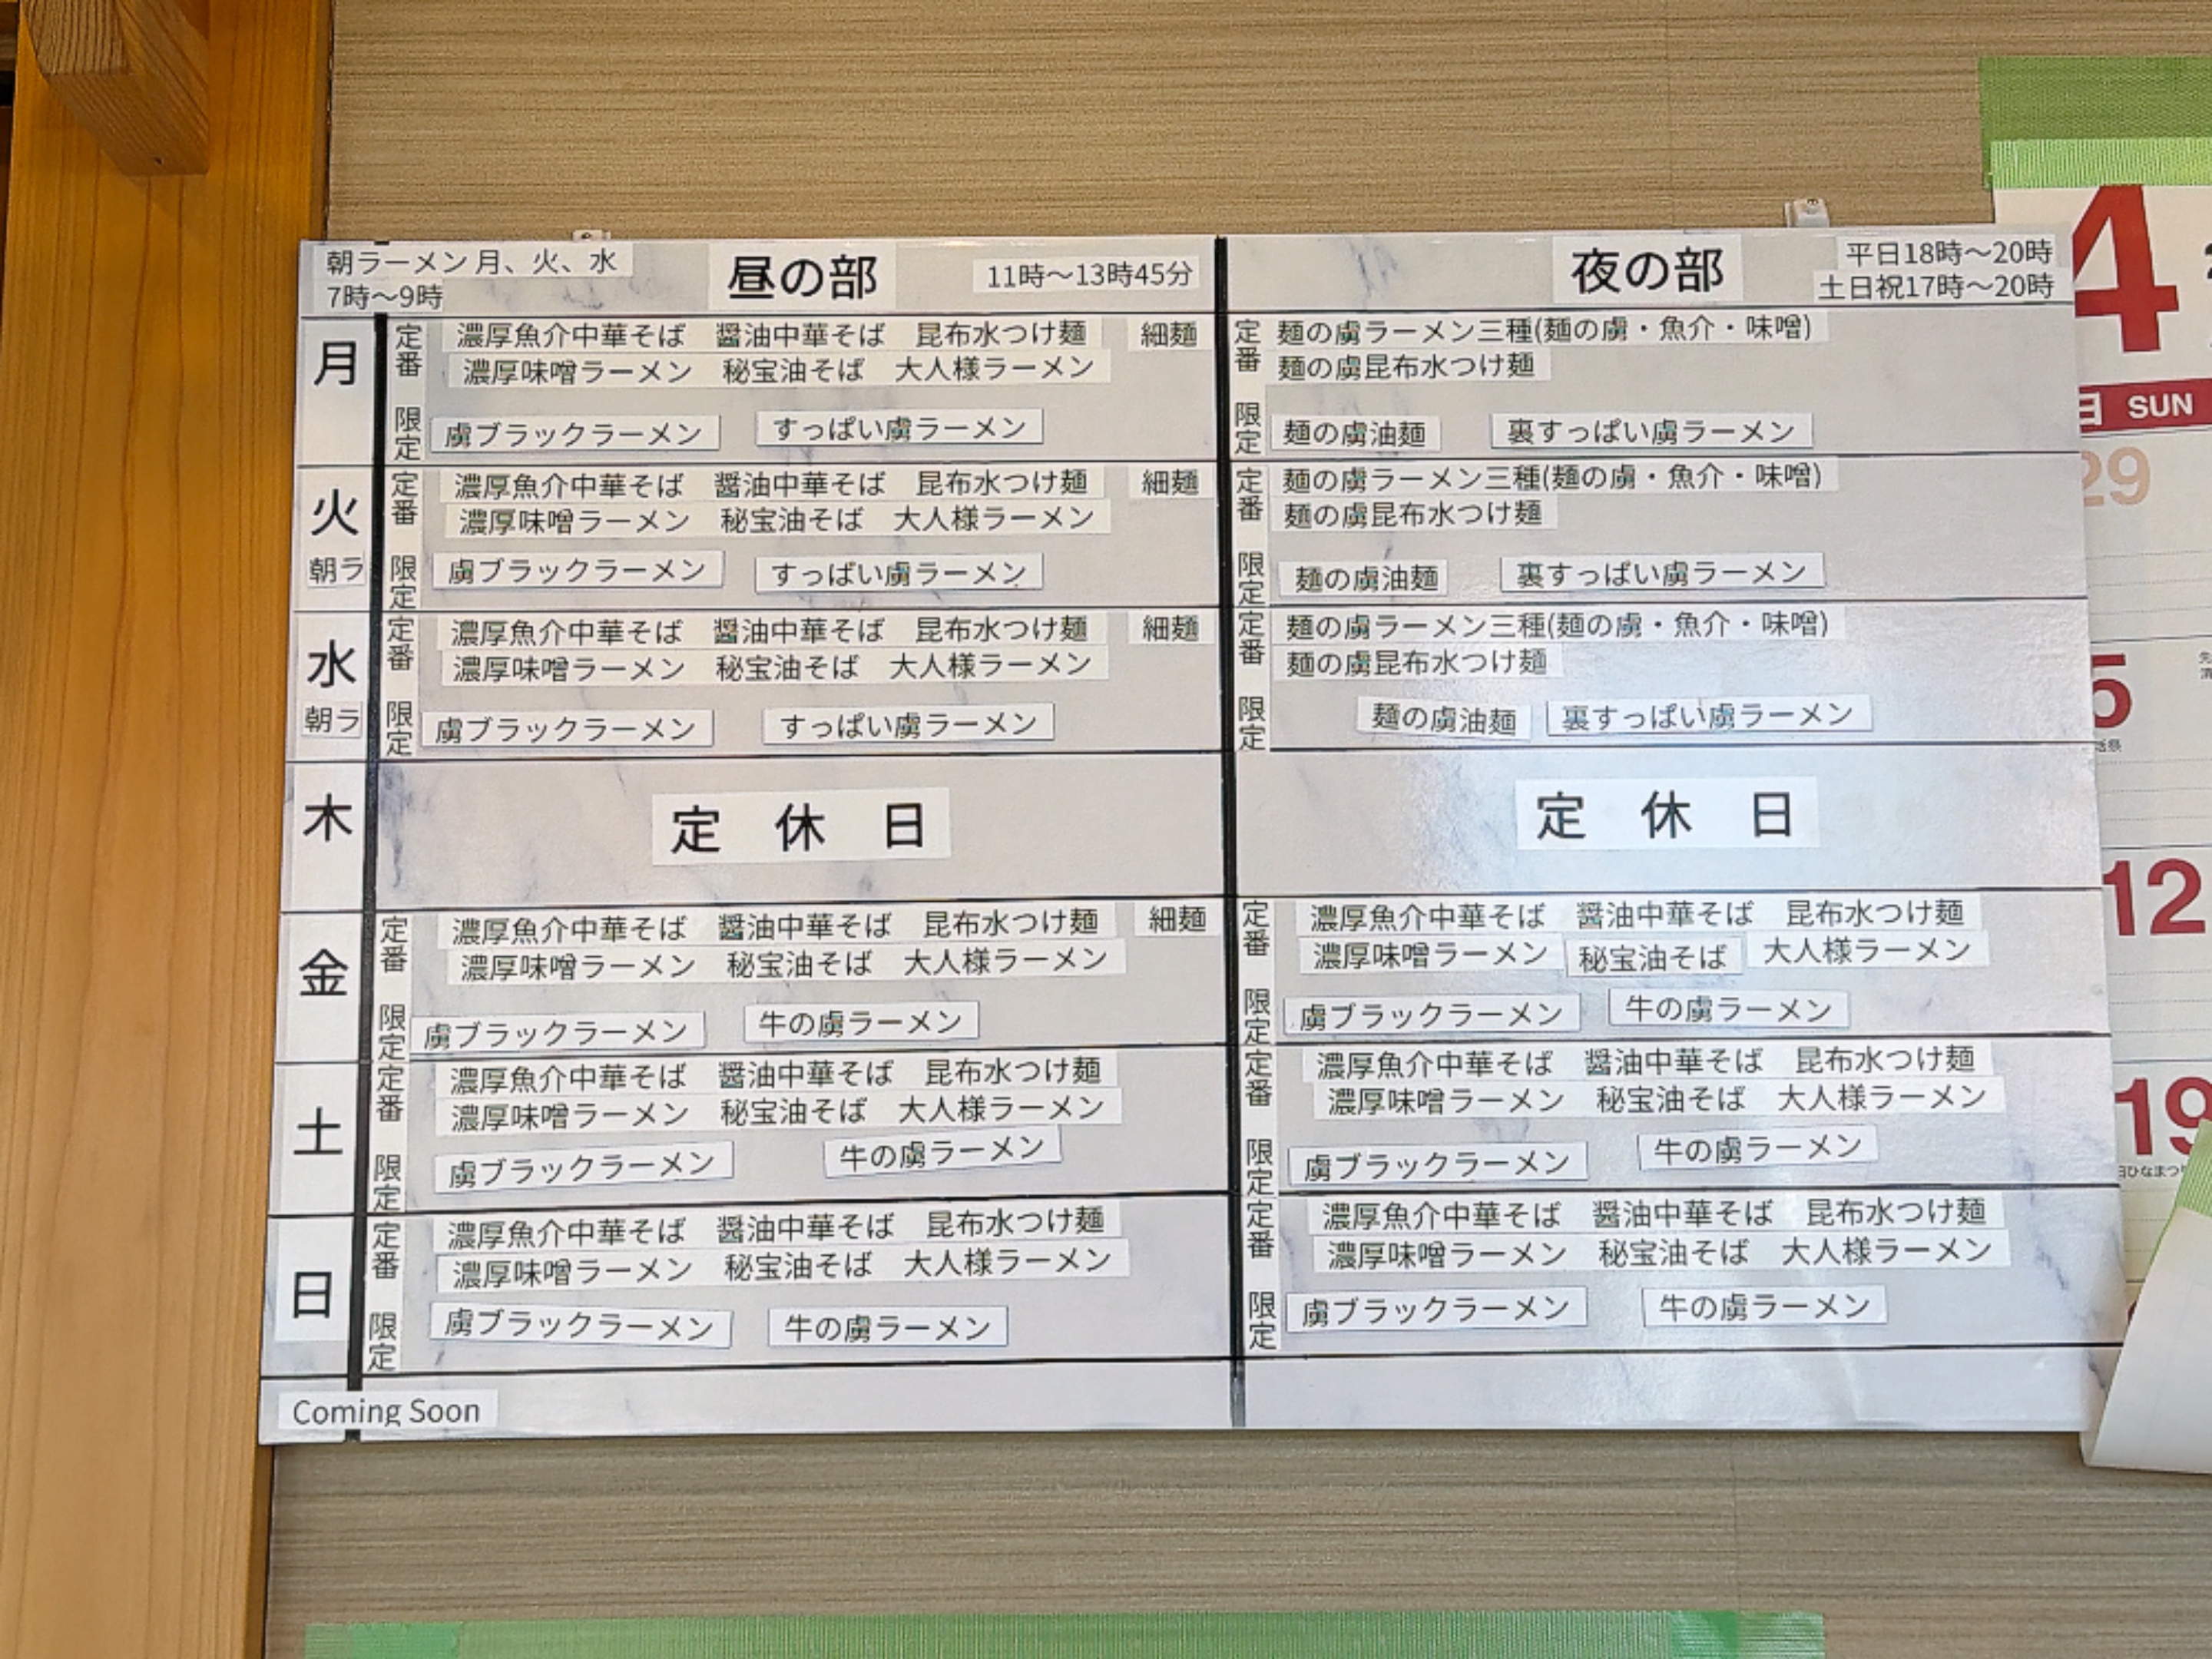 朝ラーメン 月、火、水
7時～9時
昼の部
11時～13時45分
夜の部
平日18時～20時
土日祝17時～20時
月
定番
濃厚魚介中華そば 醤油中華そば 昆布水つけ麺 細麺
濃厚味噌ラーメン 秘宝油そば 大人様ラーメン
限定
虜ブラックラーメン すっぱい虜ラーメン
定番
麺の虜ラーメン三種(麺の虜・魚介・味噌)
麺の虜昆布水つけ麺
限定
麺の虜油麺 裏すっぱい虜ラーメン
火
朝ラ
定番
濃厚魚介中華そば 醤油中華そば 昆布水つけ麺 細麺
濃厚味噌ラーメン 秘宝油そば 大人様ラーメン
限定
虜ブラックラーメン すっぱい虜ラーメン
定番
麺の虜ラーメン三種(麺の虜・魚介・味噌)
麺の虜昆布水つけ麺
限定
麺の虜油麺 裏すっぱい虜ラーメン
水
朝ラ
定番
濃厚魚介中華そば 醤油中華そば 昆布水つけ麺 細麺
濃厚味噌ラーメン 秘宝油そば 大人様ラーメン
限定
虜ブラックラーメン すっぱい虜ラーメン
定番
麺の虜ラーメン三種(麺の虜・魚介・味噌)
麺の虜昆布水つけ麺
限定
麺の虜油麺 裏すっぱい虜ラーメン
木
定 休 日
定 休 日
金
定番
濃厚魚介中華そば 醤油中華そば 昆布水つけ麺 細麺
濃厚味噌ラーメン 秘宝油そば 大人様ラーメン
限定
虜ブラックラーメン 牛の虜ラーメン
定番
濃厚魚介中華そば 醤油中華そば 昆布水つけ麺
濃厚味噌ラーメン 秘宝油そば 大人様ラーメン
限定
虜ブラックラーメン 牛の虜ラーメン
土
定番
濃厚魚介中華そば 醤油中華そば 昆布水つけ麺
濃厚味噌ラーメン 秘宝油そば 大人様ラーメン
限定
虜ブラックラーメン 牛の虜ラーメン
定番
濃厚魚介中華そば 醤油中華そば 昆布水つけ麺
濃厚味噌ラーメン 秘宝油そば 大人様ラーメン
限定
虜ブラックラーメン 牛の虜ラーメン
日
定番
濃厚魚介中華そば 醤油中華そば 昆布水つけ麺
濃厚味噌ラーメン 秘宝油そば 大人様ラーメン
限定
虜ブラックラーメン 牛の虜ラーメン
定番
濃厚魚介中華そば 醤油中華そば 昆布水つけ麺
濃厚味噌ラーメン 秘宝油そば 大人様ラーメン
限定
虜ブラックラーメン 牛の虜ラーメン
Coming Soon
4
日 SUN
29
5
12
19